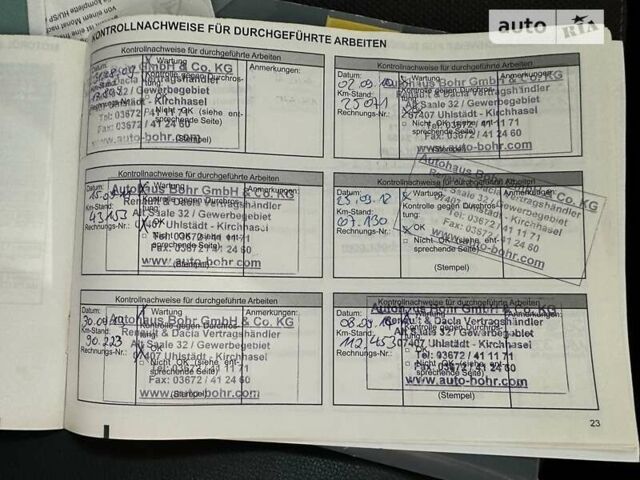 auto RIA
KONTROLLNACHWEISE FÜR DURCHGEFÜHRTE ARBEITEN
Kontrollnachweise für durchgeführte Arbeiten
Datum:
Wartung
Anmerkungen:
GmbH & Co. KG
Kontrolle gegen Durchros-
tung:
Dacia Vertragshändler
Km-Stand:
Rechnungs-Nr.:
Gewerbegebiet
Kirchhasel
Nicht OK (siehe ent-
sprechende Seite)
Tel: 03672 / 41 11 71
Fax: 03672 / 41 24 60
www.auto-bohr.com
(Stempel)
Kontrollnachweise für durchgeführte Arbeiten
Datum:
Wartung
Anmerkungen:
Autohaus Bohr GmbH & Co. KG
Renault & Dacia Vertragshändler
Km-Stand: 25071
Alt Saale 32 / Gewerbegebiet
Rechnungs-Nr.:
07407 Uhlstädt - Kirchhasel
Nicht OK (siehe ent-
sprechende Seite)
Tel: 03672 / 41 11 71
Fax: 03672 / 41 24 60
www.auto-bohr.com
(Stempel)
Kontrollnachweise für durchgeführte Arbeiten
Datum:
Wartung
Anmerkungen:
Autohaus Bohr GmbH & Co. KG
Kontrolle gegen Durchros-
tung:
Renault & Dacia Vertragshändler
Km-Stand: 43153
Alt Saale 32 / Gewerbegebiet
Rechnungs-Nr.:
OK
07407 Uhlstädt - Kirchhasel
Nicht OK (siehe ent-
sprechende Seite)
Tel: 03672 / 41 11 71
Fax: 03672 / 41 24 60
www.auto-bohr.com
(Stempel)
Kontrollnachweise für durchgeführte Arbeiten
Datum: 25.09.18
Wartung
Anmerkungen:
Autohaus Bohr GmbH & Co. KG
Renault & Dacia Vertragshändler
Kontrolle gegen Durchros-
tung:
Km-Stand:
Alt Saale 32 / Gewerbegebiet
07407 Uhlstädt - Kirchhasel
Rechnungs-Nr.:
OK
Nicht OK (siehe ent-
sprechende Seite)
Tel: 03672 / 41 11 71
Fax: 03672 / 41 24 60
www.auto-bohr.com
(Stempel)
Kontrollnachweise für durchgeführte Arbeiten
Datum:
Wartung
Anmerkungen:
Autohaus Bohr GmbH & Co. KG
Kontrolle gegen Durchros-
Renault & Dacia Vertragshändler
Km-Stand: 90.223
Alt Saale 32 / Gewerbegebiet
Rechnungs-Nr.:
07407 Uhlstädt - Kirchhasel
Nicht OK (siehe ent-
sprechende Seite)
Tel: 03672 / 41 11 71
Fax: 03672 / 41 24 60
www.auto-bohr.com
(Stempel)
Kontrollnachweise für durchgeführte Arbeiten
Datum:
Wartung
Anmerkungen:
Autohaus Bohr GmbH & Co. KG
Renault & Dacia Vertragshändler
Kontrolle gegen Durchros-
Km-Stand: 112.453
Alt Saale 32 / Gewerbegebiet
Rechnungs-Nr.:
07407 Uhlstädt - Kirchhasel
Nicht OK (siehe ent-
sprechende Seite)
Tel: 03672 / 41 11 71
Fax: 03672 / 41 24 60
www.auto-bohr.com
(Stempel)
23